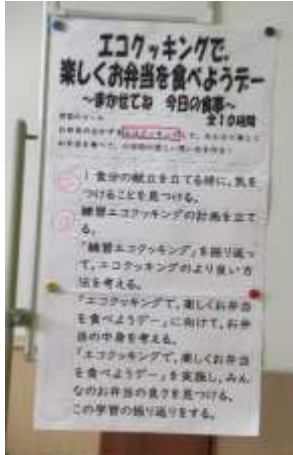 エコクッキングで、
楽しくお弁当を食べようデー
〜まかせてね 今日の食事〜
全10時間
1食分の献立を立てる時に、気を
つけることを見つける。
練習エコクッキングの計画を立て
る。
「練習エコクッキング」を振り返っ
て、エコクッキングのより良い方
法を考える。
「エコクッキングで、楽しくお弁当
を食べようデー」に向けて、お弁
当の中身を考える。
「エコクッキングで、楽しくお弁当
を食べようデー」を実施し、みん
なのお弁当の良さを見つける。
この学習の振り返りをする。